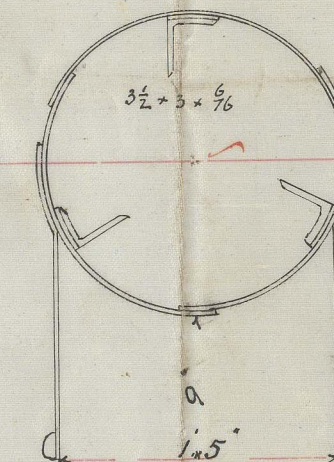 3½ × 3 × 6/16
9
1'.5"